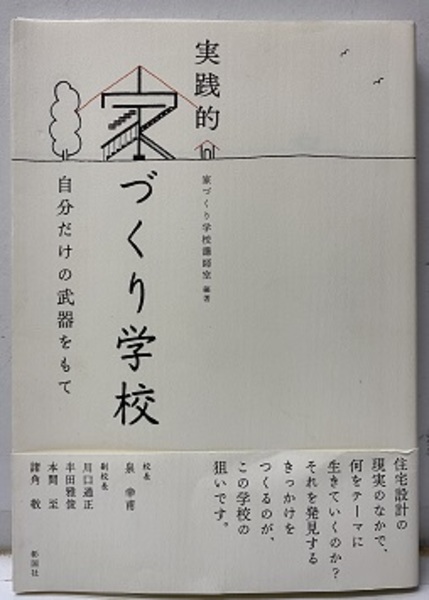 実践的
家づくり学校
自分だけの武器をもて
家づくり学校講師室 編著
住宅設計の
現実のなかで、
何をテーマに
生きていくのか？
それを発見する
きっかけを
つくるのが、
この学校の
狙いです。
校長
泉 幸甫
副校長
川口通正
半田雅俊
本間 至
諸角 敬
彰国社